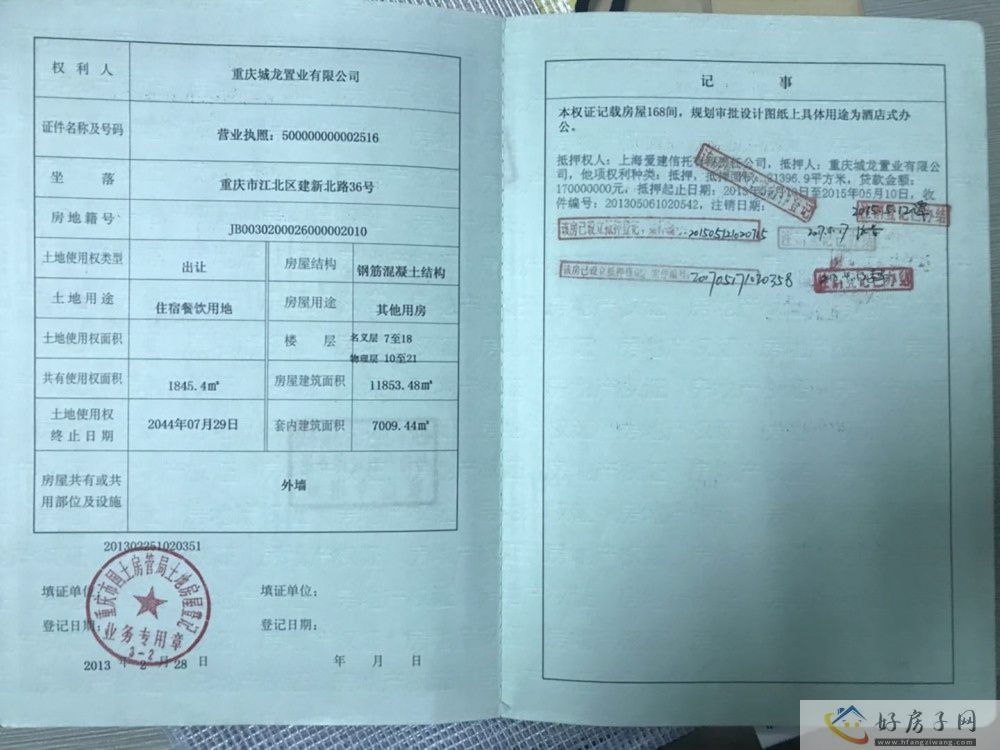 权利人 重庆城龙置业有限公司
证件名称及号码 营业执照：500000000002516
坐落 重庆市江北区建新北路36号
房地籍号 JB00302000260000020​10
土地使用权类型 出让 房屋结构 钢筋混凝土结构
土地用途 住宿餐饮用地 房屋用途 其他用房
土地使用权面积 楼层 名义层 7至18
物理层 10至21
共有使用权面积 1845.4㎡ 房屋建筑面积 11853.48㎡
土地使用权
终止日期 2044年07月29日 套内建筑面积 7009.44㎡
房屋共有或共
用部位及设施 外墙
201302251020351
填证单位 填证单位：
登记日期： 登记日期：
重庆市国土房管局土地房屋登记
业务专用章
3-2
2013年2月28日 年 月 日
记事
本权证记载房屋168间，规划审批设计图纸上具体用途为酒店式办
公。
抵押权人：上海爱建信托有限责任公司，抵押人：重庆城龙置业有限公
司，他项权利种类：抵押，抵押面积：21396.9平方米，贷款金额：
170000000元，抵押起止日期：2013年05月10日至2015年05月10日，收
件编号：201305061020542，注销日期：
2015.5.12
该房已设立抵押登记， 201505121020765
该房已设立抵押登记，收件编号：201705171030358
好房子网
www.hfangziwang.com